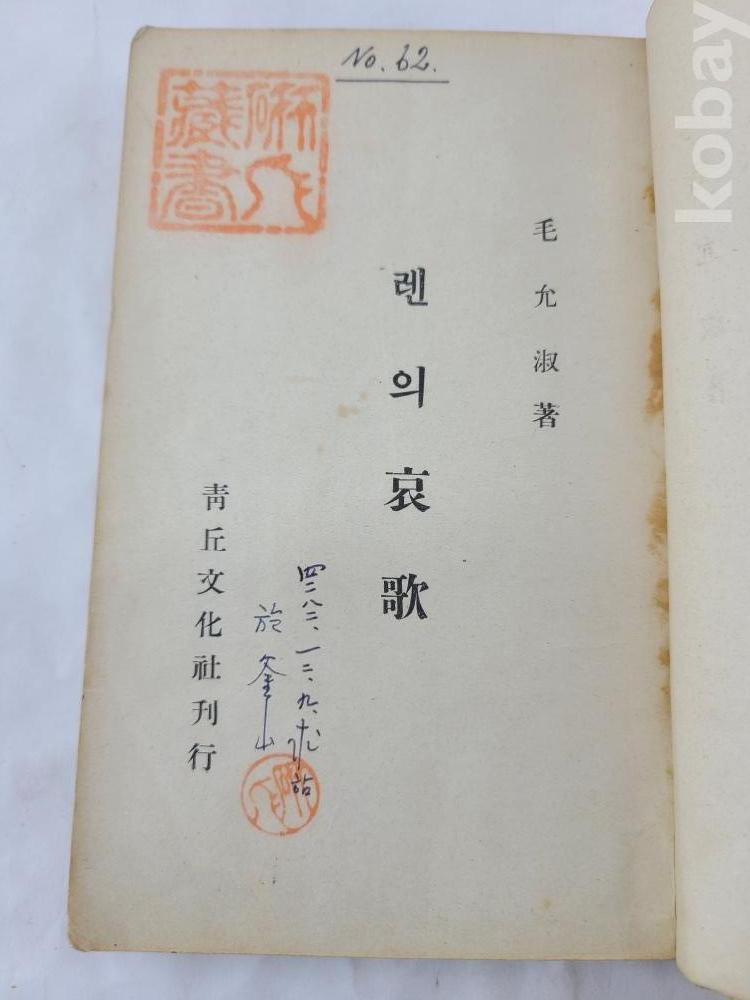 No. 62.
毛允淑著
렌의哀歌
四二八二、一二、九、
於 釜山
靑丘文化社刊行
藏書
kobay